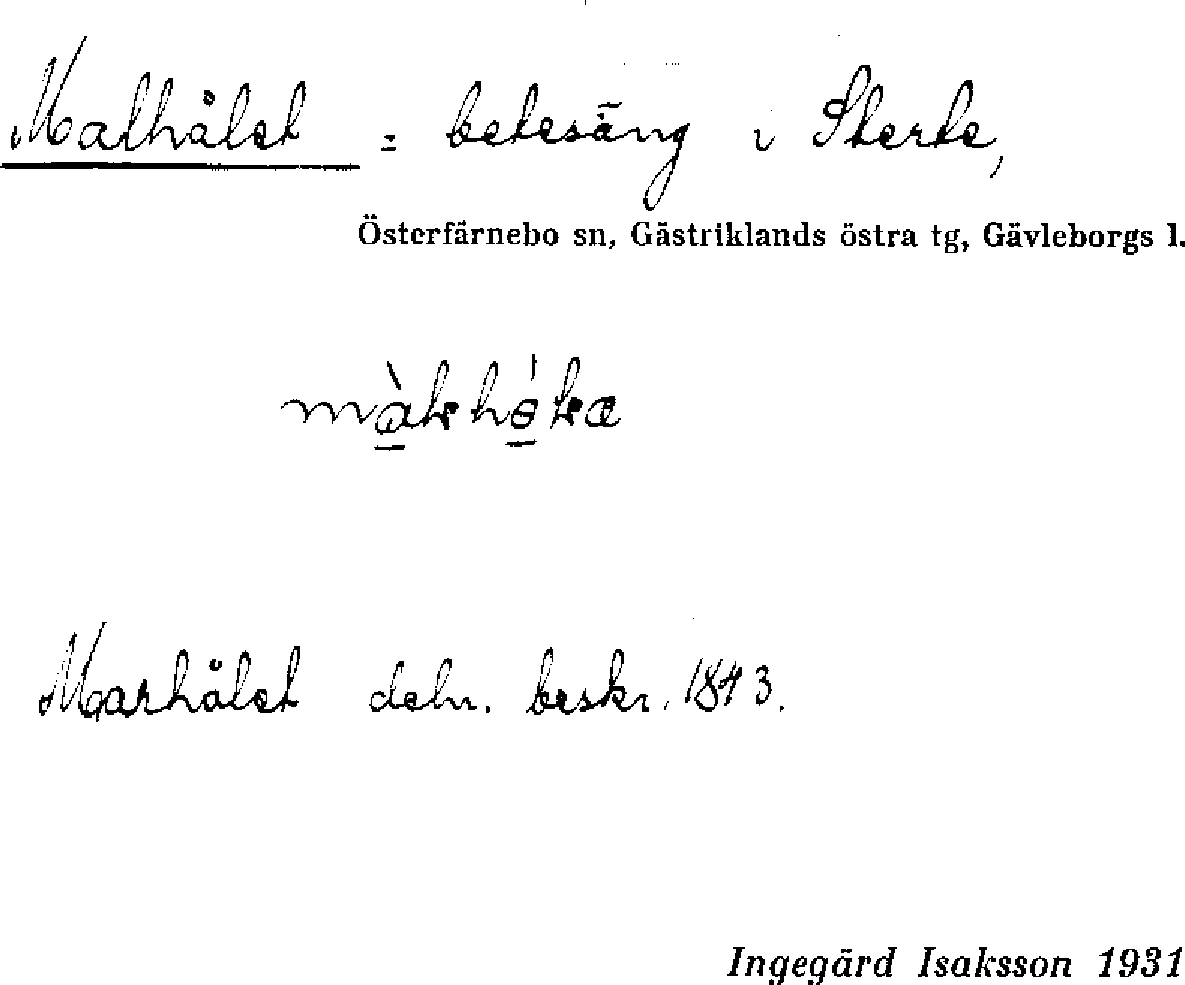 Malhålet = betesäng i Sterte,
Österfärnebo sn, Gästriklands östra tg, Gävleborgs l.
Marhålet deln. beskr. 1843.
Ingegärd Isaksson 1931